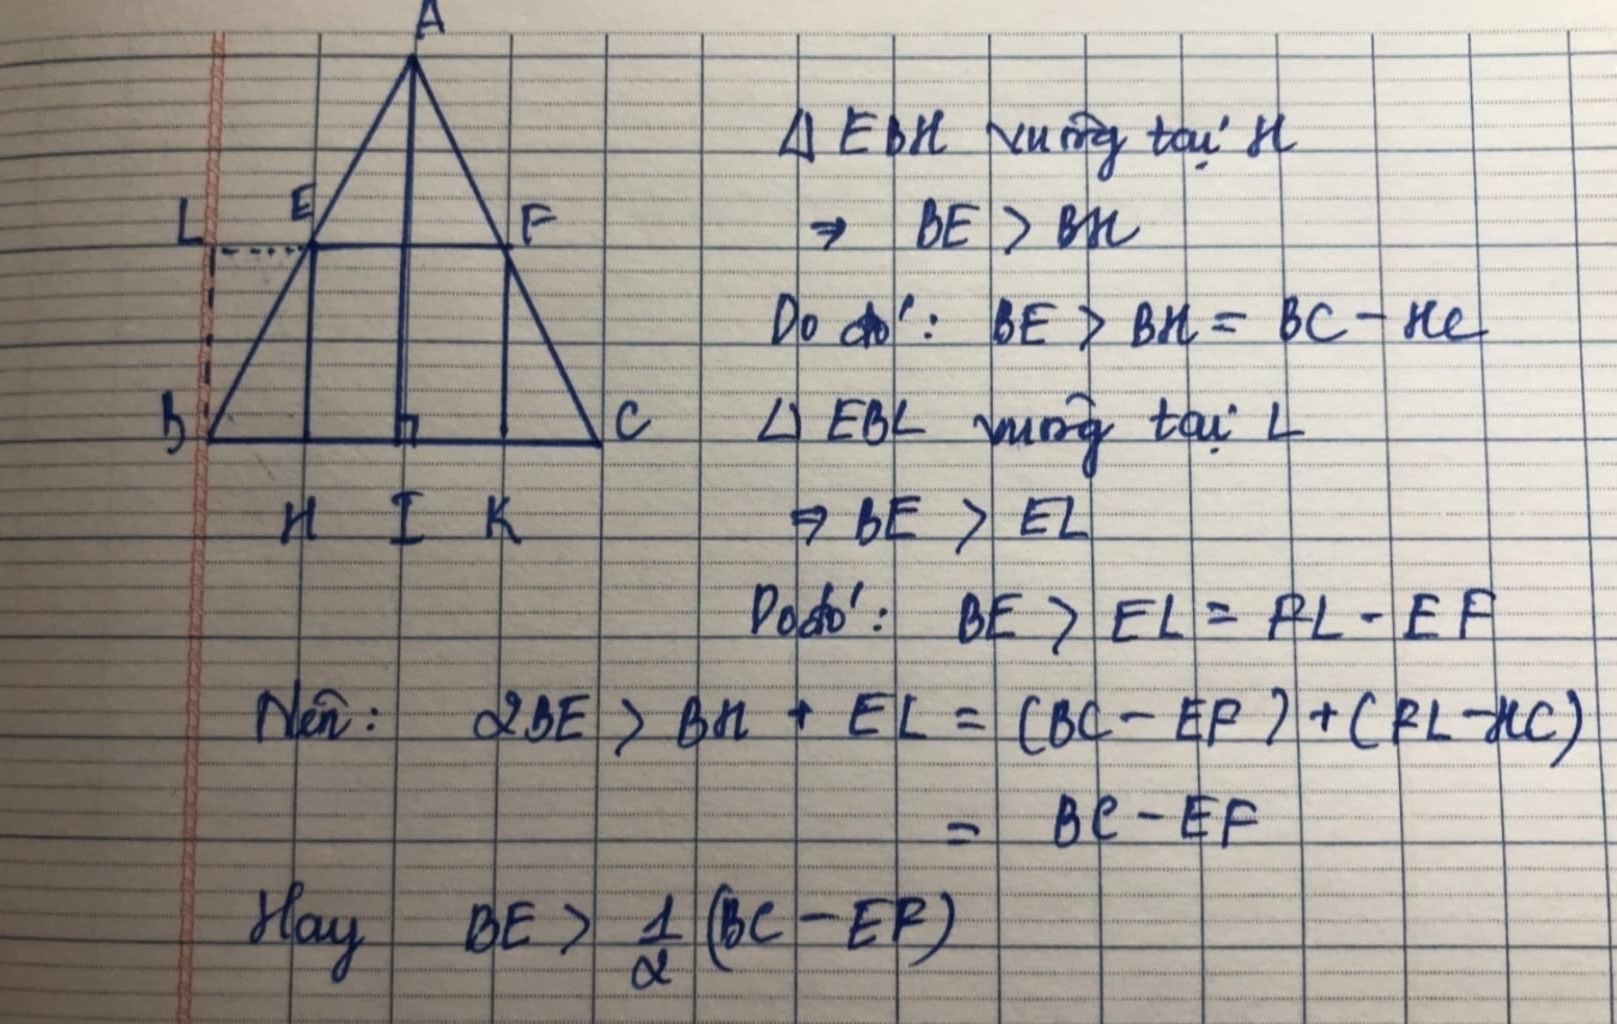 A
L E F
B C
H I K
Δ EBH vuông tại H
⇒ BE > BH
Do đó: BE > BH = BC - HC
Δ EBL vuông tại L
⇒ BE > EL
Do đó: BE > EL = FL - EF
Nên: 2BE > BH + EL = (BC - EF) + (FL - HC)
= BC - EF
Hay BE > 1/2 (BC - EF)